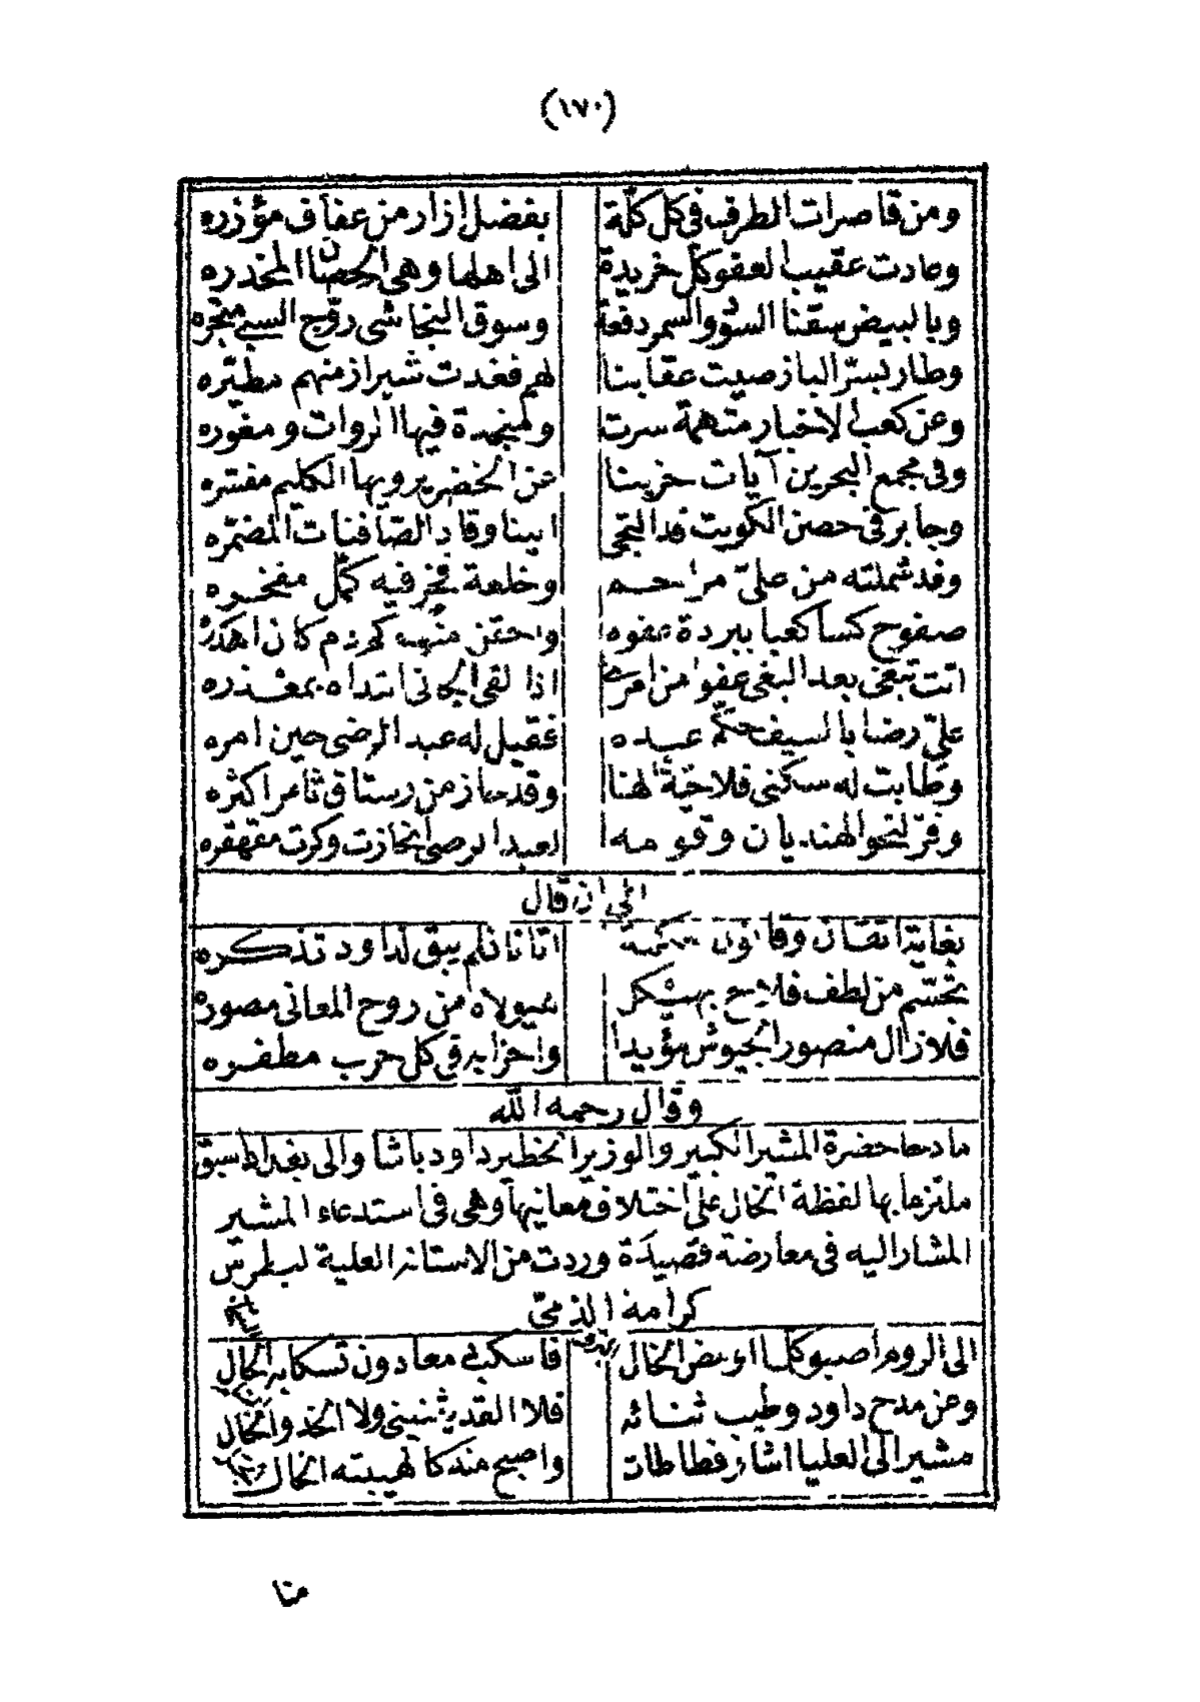 (١٧٠)
ومن قاصرات الطرف في كل كلّة بفضل ازار من عفاف مؤزره
وعادت عقيب العفو كل خريدة الى اهلها وهي الحصان المخدره
وبالبيض سقنا السود والسمر دفعة وسوق النجاشى روّج السبي متجره
وطار بسرّ الباز صيت عقابنا لهم فغدت شيراز منهم مطيّره
وعن كعب الاخبار متهمة سرت ومنجدة فيها الروات ومغوره
وفى مجمع البحرين آيات حزبنا عن الخضر يرويها الكليم مفسّره
وجابر فى حصن الكويت قد التجى ابينا وقاد الصّافنات المضمّره
وقد شملته من عليّ مراحم وخلعة فخر فيه كمّل مفخره
صفوح كسا كعبا ببردة عفوه
اتت تبتغى بعد البغى عفوا من امرء اذا لقى الجانى ابتداه بمعذره
عليّ رضا بالسيف حكّم عبده فقيل له عبد الرضى حين امره
وطابت له سكنى فلاحيّة الهنا وقد حاز من رستاق ثامر اكثره
وفرّ لنحو الهنديان وقومه لعبد الرضى انحازت وكرت مقهقره
الى ان قال
بغاية اتقان وقانون حكمة اتانا فلم يبق لداود تذكره
تجسّم من لطف فلاح بهيكل هيولاه من روح المعانى مصوره
فلا زال منصور الجيوش مؤيدا واحزابه فى كل حرب مظفره
وقال رحمه الله
مادحا حضرة المشير الكبير والوزير الخطير داود باشا والى بغداد اسبق
ملتزما بها لفظة الخال على اختلاف معانيها وهى فى استدعاء المشير
المشار اليه فى معارضة قصيدة وردت من الاستانه العلية لبطرس
كرامة الذمىّ
الى الروم اصبو كلما اومض الخال فاسكب دمعا دون تسكابه الخال
وعن مدح داود وطيب ثنائه فلا القد يثنينى ولا الخد والخال
مشير الى العليا اشار فطاطات واصبح مندكا لهيبته الخال
منا